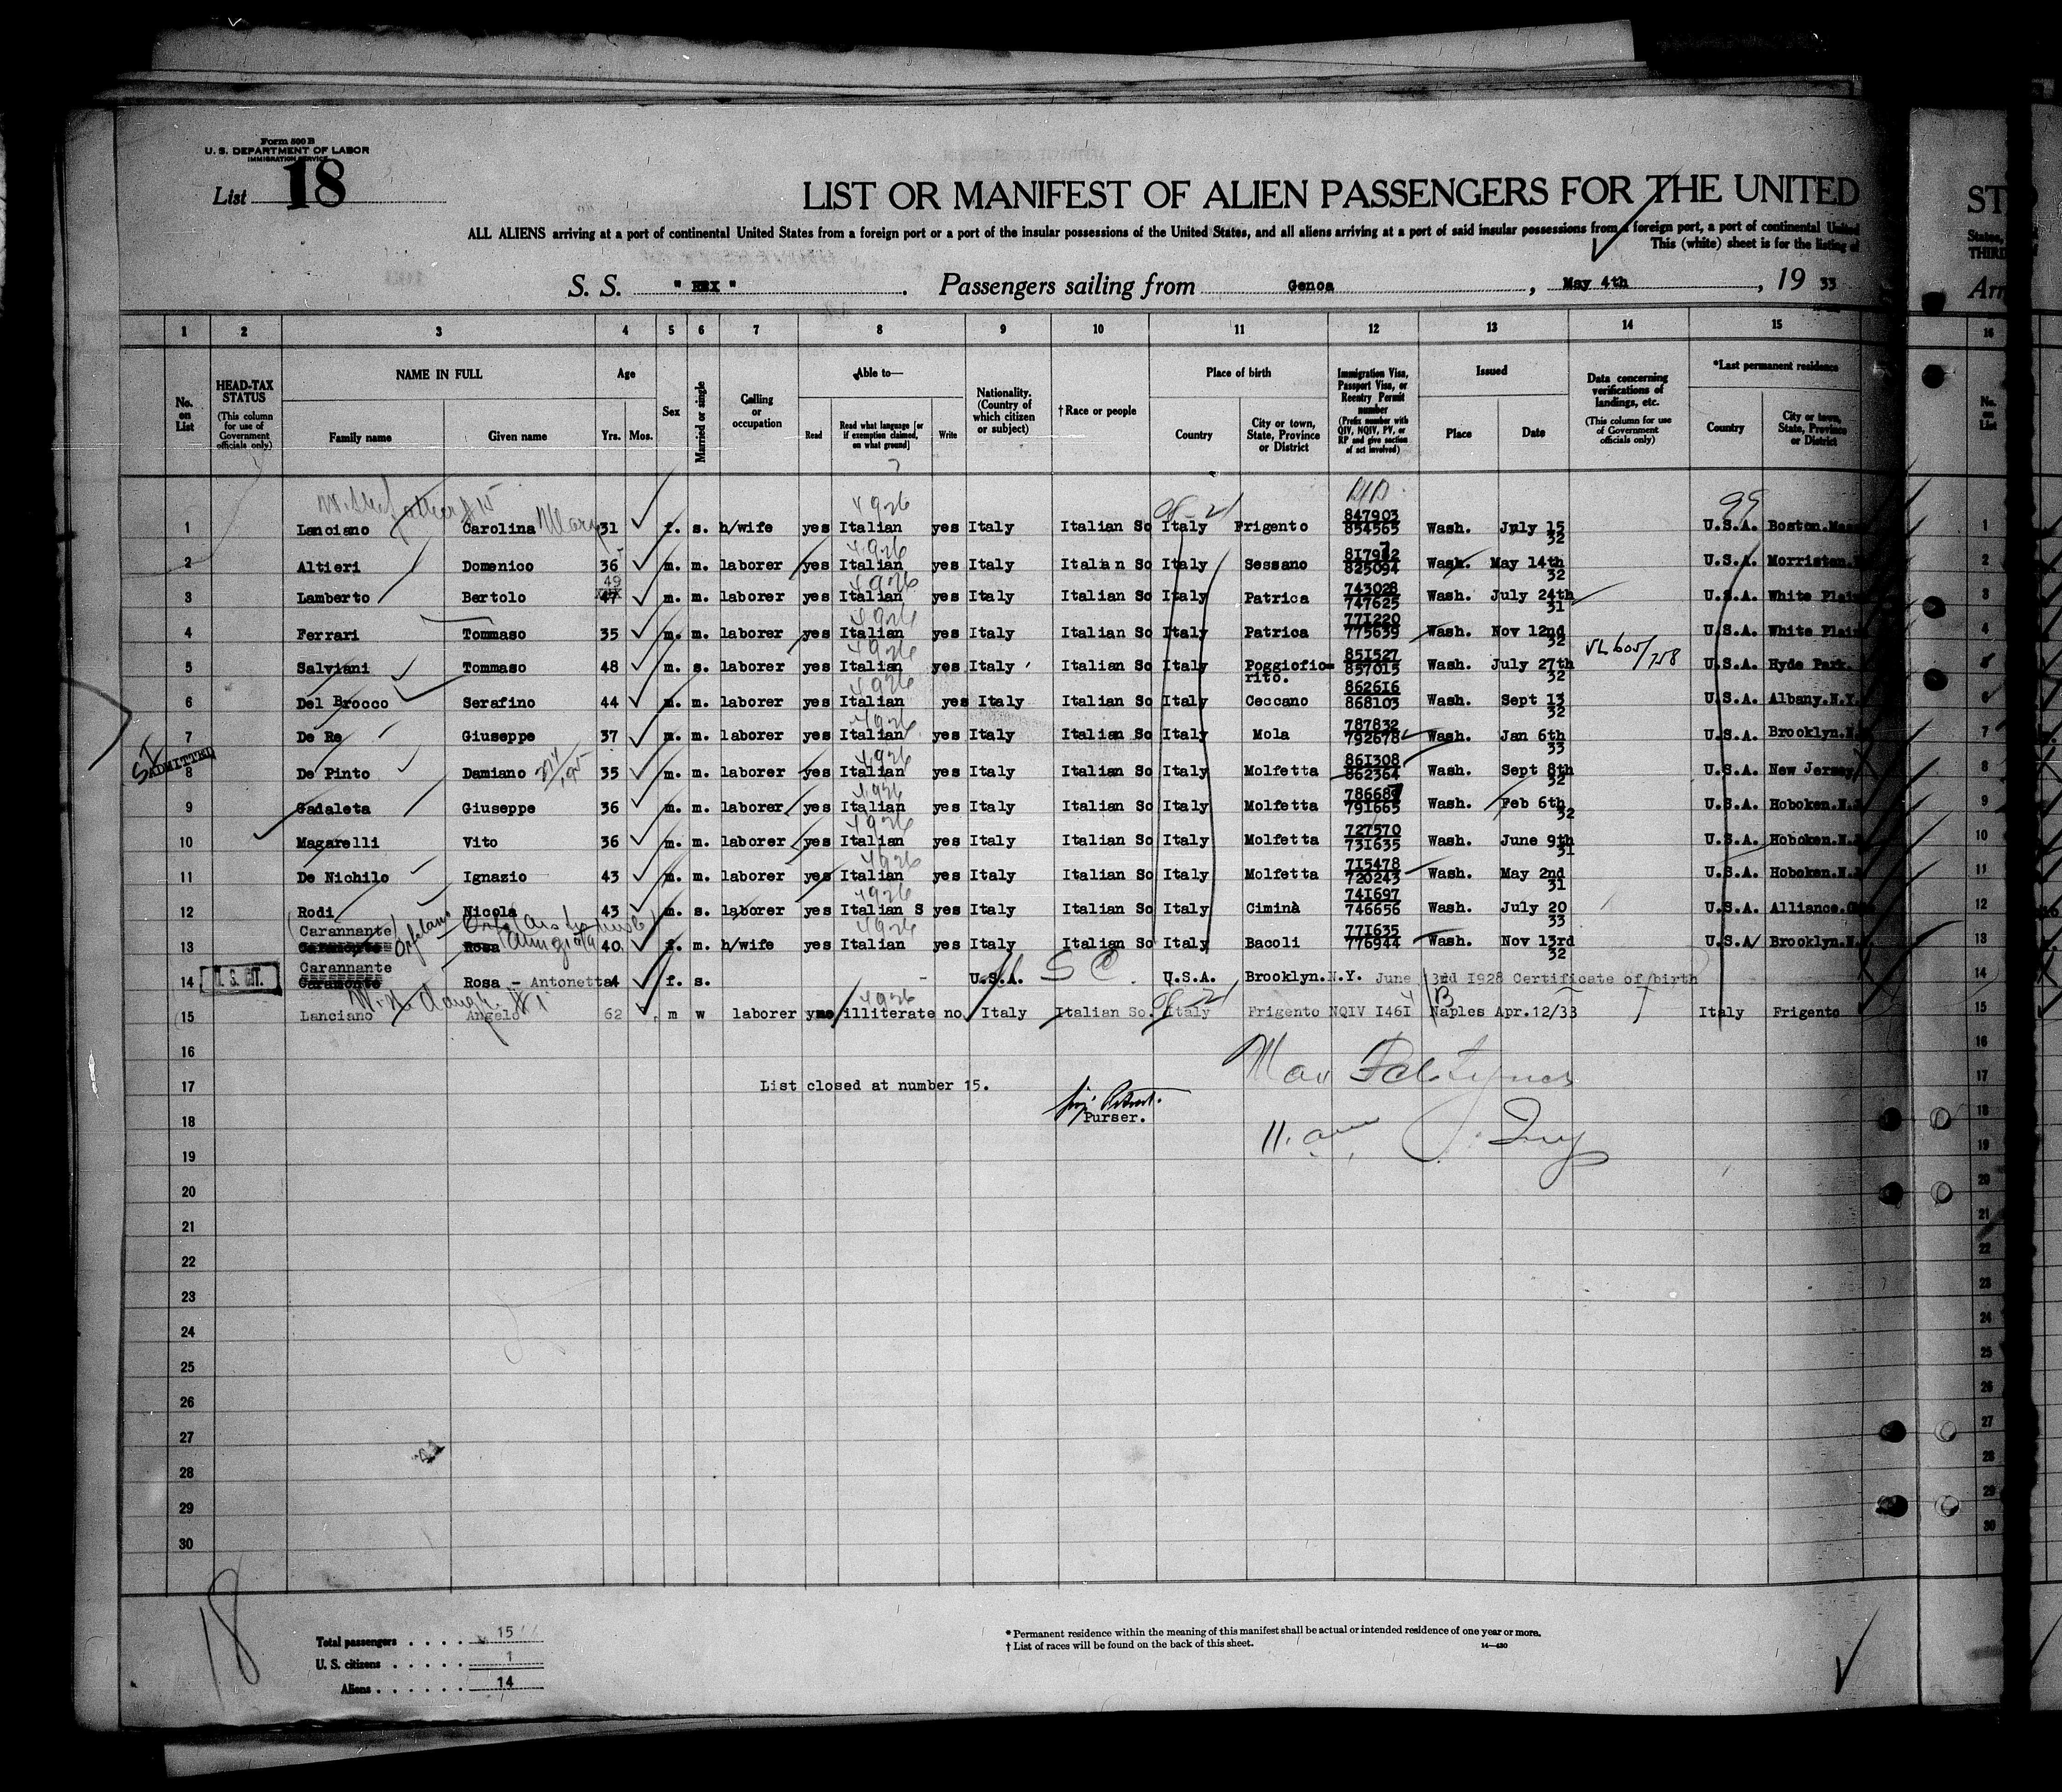 Form 500 B
U. S. DEPARTMENT OF LABOR
IMMIGRATION SERVICE
List 18
LIST OR MANIFEST OF ALIEN PASSENGERS FOR THE UNITED
ST
ALL ALIENS arriving at a port of continental United States from a foreign port or a port of the insular possessions of the United States, and all aliens arriving at a port of said insular possessions from a foreign port, a port of continental United
States,
This (white) sheet is for the listing of
THIRD
S. S. " REX " . Passengers sailing from Genoa , May 4th , 19 33
Arr
1 2 3 4 5 6 7 8 9 10 11 12 13 14 15 16
No. on List
HEAD-TAX STATUS (This column for use of Government officials only)
NAME IN FULL Family name Given name
Age Yrs. Mos.
Sex
Married or single
Calling or occupation
Able to— Read Read what language [or if exemption claimed, on what ground] Write
Nationality. (Country of which citizen or subject)
† Race or people
Place of birth Country City or town, State, Province or District
Immigration Visa, Passport Visa, or Reentry Permit number (Prefix number with QIV, NQIV, PV, or RP and give section of act involved)
Issued Place Date
Data concerning verifications of landings, etc. (This column for use of Government officials only)
*Last permanent residence Country City or town, State, Province or District
No. on List
1 Lanciano Carolina 31 f. s. h/wife yes Italian yes Italy Italian So Italy Frigento 847903 854565 Wash. July 15 32 U.S.A. Boston.Mass 1
2 Altieri Domenico 36 m. m. laborer yes Italian yes Italy Italian So Italy Sessano 825094 Wash. May 14th 32 U.S.A. Morristen. 2
3 Lamberto Bertolo 49 47 m. m. laborer yes Italian yes Italy Italian So Italy Patrica 743028 747625 Wash. July 24th 31 U.S.A. White Plain 3
4 Ferrari Tommaso 35 m. m. laborer yes Italian yes Italy Italian So Italy Patrica 771220 775639 Wash. Nov 12nd 32 U.S.A. White Plain 4
5 Salviani Tommaso 48 m. s. laborer yes Italian yes Italy Italian So Italy Poggiofio=rito. 851527 857015 Wash. July 27th 32 U.S.A. Hyde Park. 5
6 Del Brocco Serafino 44 m. m. laborer yes Italian yes Italy Italian So Italy Ceccano 862616 868103 Wash. Sept 13 32 U.S.A. Albany.N.Y. 6
7 De Re Giuseppe 37 m. m. laborer yes Italian yes Italy Italian So Italy Mola 787832 792678 Wash. Jan 6th 33 U.S.A. Brooklyn.N 7
SI ADMITTED
8 De Pinto Damiano 35 m. m. laborer yes Italian yes Italy Italian So Italy Molfetta 861308 862364 Wash. Sept 8th 32 U.S.A. New Jersey 8
9 Gadaleta Giuseppe 36 m. m. laborer yes Italian yes Italy Italian So Italy Molfetta 791665 Wash. Feb 6th 32 U.S.A. Hoboken.N. 9
10 Magarelli Vito 36 m. m. laborer yes Italian yes Italy Italian So Italy Molfetta 727570 731635 Wash. June 9th 31 U.S.A. Hoboken.N. 10
11 De Nichilo Ignazio 43 m. m. laborer yes Italian yes Italy Italian So Italy Molfetta 715478 720243 Wash. May 2nd 31 U.S.A. Hoboken.N. 11
12 Rodi Nicola 43 m. s. laborer yes Italian S yes Italy Italian So Italy Ciminà 741697 746656 Wash. July 20 33 U.S.A. Alliance. 12
13 Carannante Caramonte Rosa 40 f. m. h/wife yes Italian yes Italy Italian So Italy Bacoli 771635 776944 Wash. Nov 13rd 32 U.S.A. Brooklyn.N. 13
14 Carannante Caramonte Rosa - Antonetta 4 f. s. - U.S.A. U.S.A. Brooklyn.N.Y. June 3rd 1928 Certificate of birth 14
15 Lanciano Angelo 62 m w laborer illiterate no Italy Italian So. Italy Frigento NQIV 1461 Naples Apr.12/33 Italy Frigento 15
16 16
17 List closed at number 15. 17
18 Purser. 18
19 19
20 20
21 21
22 22
23 23
24 24
25 25
26 26
27 27
28 28
29 29
30 30
18
Total passengers . . . . 15
U. S. citizens . . . . . 1
Aliens . . . . . . 14
* Permanent residence within the meaning of this manifest shall be actual or intended residence of one year or more.
† List of races will be found on the back of this sheet.
14—430